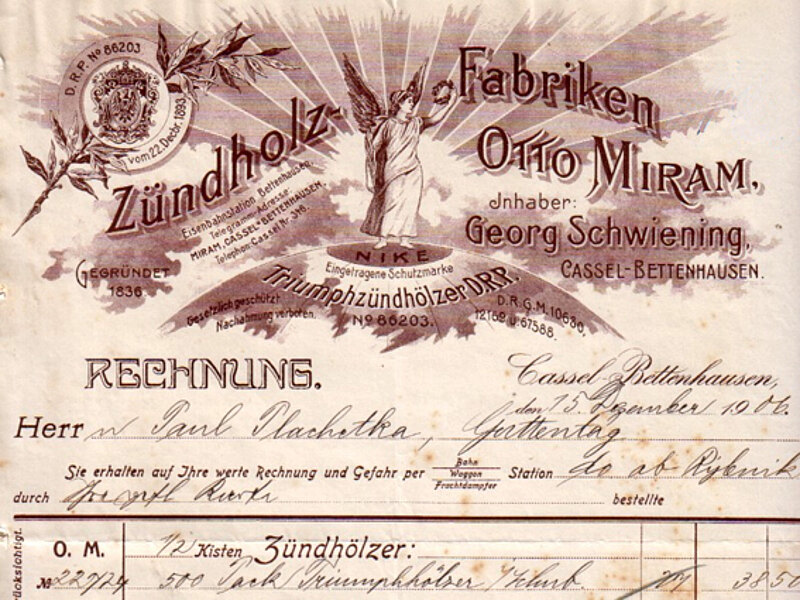 D.R.P. No 86203
vom 22. Decbr. 1893.
Zündholz-
Fabriken
Otto Miram,
Jnhaber:
Georg Schwiening,
Cassel-Bettenhausen.
Eisenbahnstation Bettenhausen.
Telegrammadresse:
Miram, Cassel-Bettenhausen.
Telephon: Cassel Nr. 346.
Gegründet
1836
NIKE
Eingetragene Schutzmarke
Triumphzündhölzer D.R.P.
No 86203.
Gesetzlich geschützt.
Nachahmung verboten.
D.R.G.M. 10630,
12162 u. 67588.
Rechnung.
Cassel-Bettenhausen,
den 15. Dezember 1906.
Herr n Paul Plachetka, Guttentag
Sie erhalten auf Ihre werte Rechnung und Gefahr per Bahn Waggon Frachtdampfer Station do ab Rybnik
durch bestellte
O. M. 1/2 Kisten Zündhölzer:
No 227/74 500 Pack Triumphhölzer 38 50
rücksichtigt.